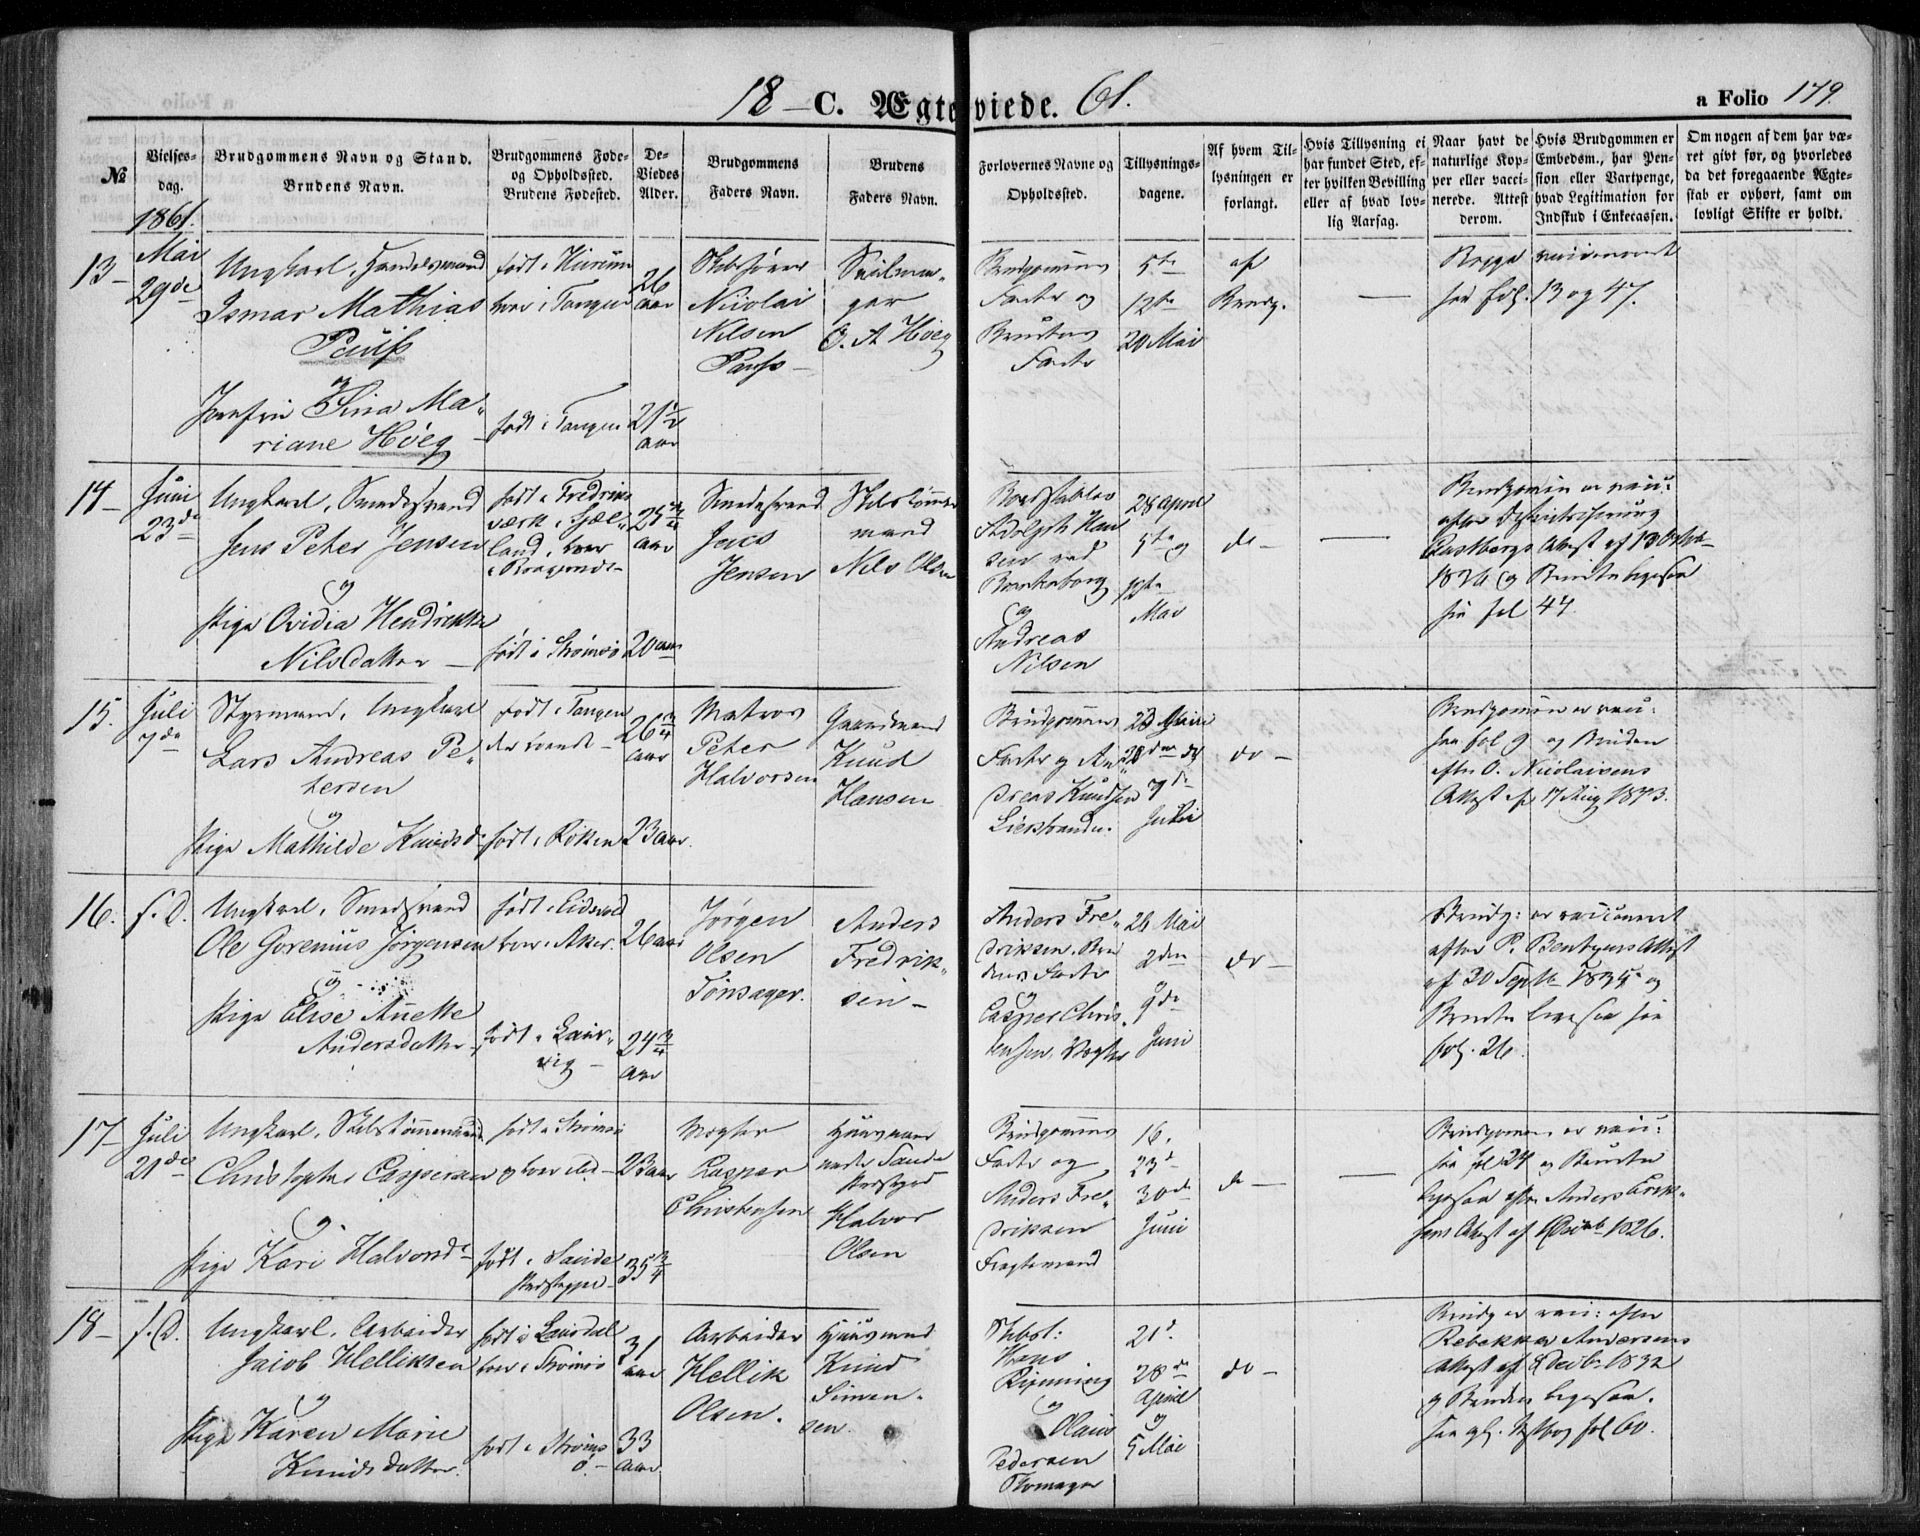 18 – C. Ægteviede. 61.
a Folio 179.
№
Vielses-
dag.
Brudgommens Navn og Stand.
Brudens Navn.
Brudgommens Føde-
og Opholdssted.
Brudens Fødested.
De
Viedes
Alder.
Brudgommens
Faders Navn.
Brudens
Faders Navn.
Forlovernes Navne og
Opholdssted.
Tillysnings-
dagene.
Af hvem Til-
lysningen er
forlangt.
Hvis Tillysning ei
har fundet Sted, ef-
ter hvilken Bevilling
eller af hvad lov-
lig Aarsag.
Naar havt de
naturlige Kop-
per eller vacci-
nerede. Attest
derom.
Hvis Brudgommen er
Embedsm., har Pen-
sion eller Vartpenge,
hvad Legitimation for
Indskud i Enkecassen.
Om nogen af dem har væ-
ret givt før, og hvorledes
da det foregaaende Ægte-
skab er ophørt, samt om
lovligt Skifte er holdt.
1861.
13 –
Mai
29de
Ungkarl, Handelsmand
Ismar Mathias
Pauss
og
Jomfru Sina Ma-
riane Höeg
født i Hurum
boer i Tangen
født i Tangen
26
aar
21 1/2
aar
Skibsfører
Nicolai
Nilsen
Pauss –
Seilma-
ger
O. A Höeg
Brudgommens
Fader og
Brudens
Fader
5te
12te
20 Mai
af
Brudg.
–
Begge vaccinerede
see fol. 13 og 47.
14 –
Juni
23de
Ungkarl, Smedesvend
Jens Peter Jensen
og
Pige Ovidia Hendrikke
Nilsdatter –
født i Fredriks
værk i Sjæl-
land, boer
i Bragernes –
født i Strömsö
25 3/4
aar
20 aar
Smedesvend
Jens
Jensen
Skibstömmer
mand
Nils Olsen
Bordstabler
Adolph Han
sen ved
og
Andreas
Nilsen
28 April
5te og
12te
Mai
do –
–
Brudgommen er vacc:
efter
Attest af 13
1836 og Bruden ligesaa
see fol 44.
15.
Juli
7de
Styrmand, Ungkarl
Lars Andreas Pe-
tersen
og
Pige Mathilde Knudsd.
født i Tangen
der boende –
født i Röken
26 3/4
aar
23 aar.
Matros
Peter
Halvorsen
Gaardmand
Knud
Hansen
Brudgommens
Fader og An-
dreas Knudsen
Lierstranden.
23 Juni
7de
Juli
do –
Brudgommen er vacc:
see fol 9 og Bruden
efter O. Nicolaisens
Attest af 17 Aug 1843.
16.
s. D.
Ungkarl, Smedsvend
Ole Gorenius Jörgensen
og
Pige Elise Anette
Andersdatter
født i Eidsvold
boer i Aker.
født i Laur-
vig –
26 aar
24 3/4
aar
Jørgen
Olsen
Tönsager.
Anders
Fredrik-
sen –
Anders Fre-
driksen, Bru
dens Fader
og
Casper Chris
tensen, Vægter
26 Mai
2den
9de
Juni
do –
Brudg: er vaccineret
efter P. Attest
af 30 Septbr 1835 og
Bruden ligesaa see
fol. 26.
17 –
Juli
21de
Ungkarl, Skibstömmermand
Christopher Caspersen
og
Pige Kari Halvorsd.
født i Strömsö
og boer sted –
født i Sande
Præstegjeld –
23 aar
35 3/4
Vægter
Casper
Christensen
Huusmand
under Sande
Præstegaard
Halvor
Olsen
Brudgommens
Fader og
Anders Fre-
driksen
Fragtemand
16.
23de
30de
Juni
do –
–
Brudgommen er vacc:
see fol 24 og Bruden
ligesaa efter Anders Erik-
sens Attest af 1826.
18 –
s. D.
Ungkarl, Arbeider
Jacob Helliksen
og
Pige Karen Marie
Knudsdatter.
født i Laurdal
boer i Strömsö
født i Ströms
ö. –
31
aar
33
aar
Arbeider
Hellik
Olsen.
Huusmand
Knud
Simen-
sen.
Skbst:
Hans
og
Olaus
Pedersen
21de
28de
April
og
5 Mai
do –
Brudg er vacc: efter
Rebekka Andersens
Attest af 8 Decbr 1832
og Bruden ligesaa.
see gl. fol 60.